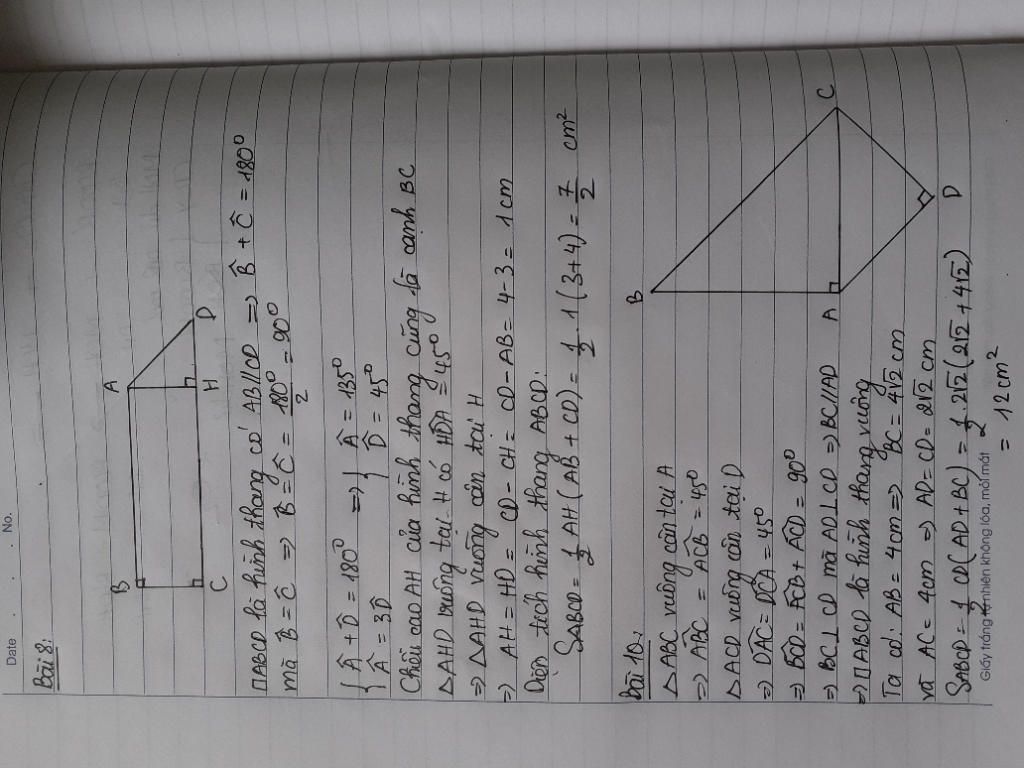 Date . . No.
Bài 8:
B
A
C
H
D
□ABCD là hình thang có AB//CD => B̂ + Ĉ = 180⁰
mà B̂ = Ĉ => B̂ = Ĉ = 180⁰/2 = 90⁰
{ Â + D̂ = 180⁰ => { Â = 135⁰
{ Â = 3D̂ { D̂ = 45⁰
Chiều cao AH của hình thang cũng là cạnh BC
△AHD vuông tại H có HDA = 45⁰
=> △AHD vuông cân tại H
=> AH = HD = CD - CH = CD - AB = 4 - 3 = 1 cm
Diện tích hình thang ABCD:
SABCD = 1/2 AH (AB + CD) = 1/2 . 1 (3+4) = 7/2 cm²
Bài 10:
B
A
C
D
△ABC vuông cân tại A
=> ABC = ACB = 45⁰
△ACD vuông cân tại D
=> DAC = DCA = 45⁰
=> BCD = ACB + ACD = 90⁰
=> BC ⊥ CD mà AD ⊥ CD => BC//AD
=> □ABCD là hình thang vuông
Ta có: AB = 4cm => BC = 4√2 cm
và AC = 4cm => AD = CD = 2√2 cm
SABCD = 1/2 CD (AD + BC) = 1/2 . 2√2 (2√2 + 4√2)
= 12 cm²
Giấy trắng tự nhiên không lóa, mỏi mắt